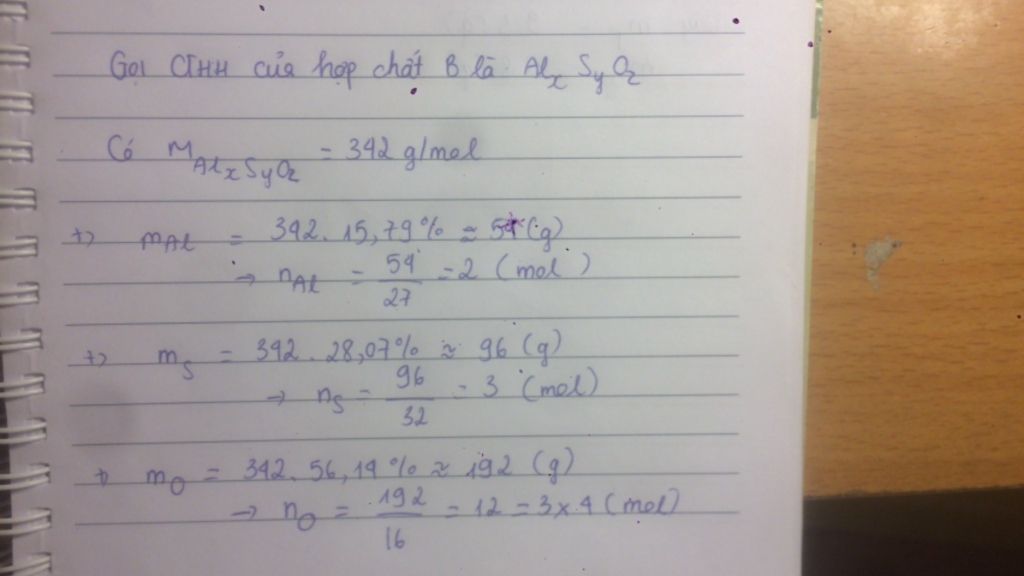 Gọi CTHH của hợp chất B là AlxSyOz
Có MAlxSyOz = 342 g/mol
+> mAl = 342. 15,79% ≈ 54 (g)
→ nAl = 54/27 = 2 (mol)
+> mS = 342. 28,07% ≈ 96 (g)
→ nS = 96/32 = 3 (mol)
+> mO = 342. 56,14% ≈ 192 (g)
→ nO = 192/16 = 12 = 3x4 (mol)